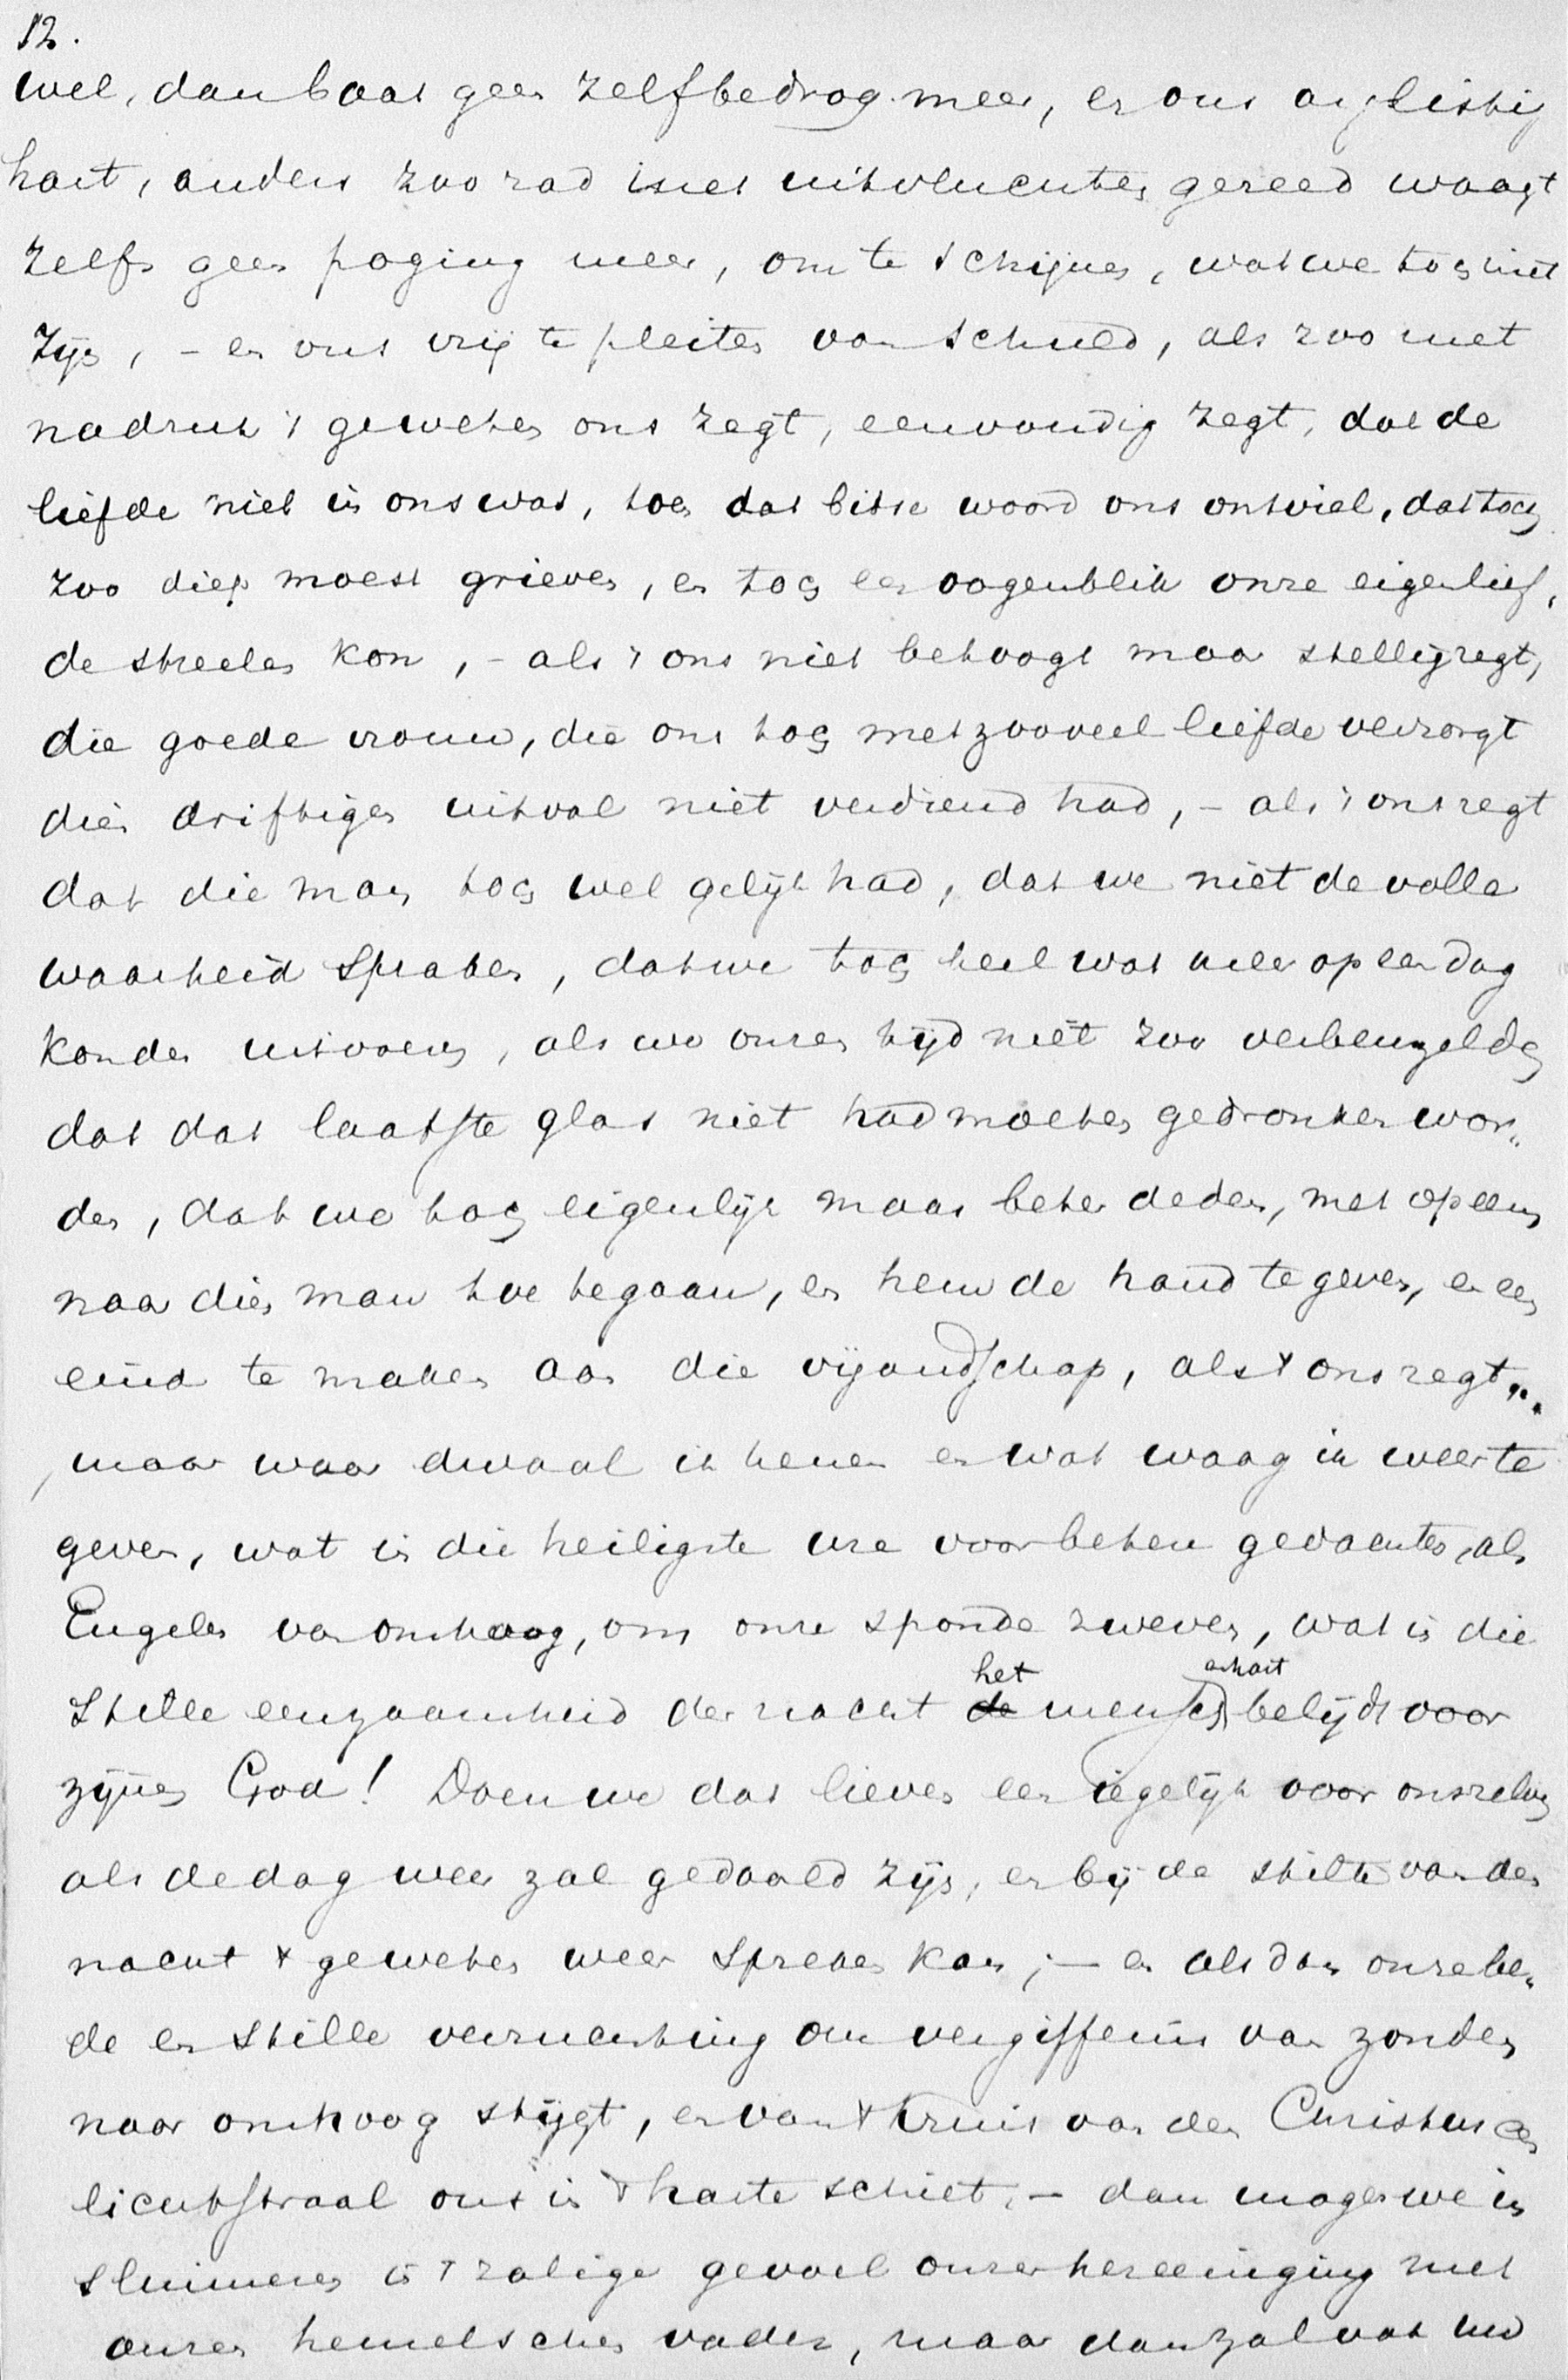 12.
wel, dan baat geen zelfbedrog meer, en ons arglistig
hart, anders zoo rad met uitvluchten gereed waagt
zelfs geen poging meer, om te schijnen, wat we toch niet
zijn, – en ons vrij te pleiten van schuld, als zoo met
nadruk 't geweten ons zegt, eenvoudig zegt, dat de
liefde niet in ons was, toen dat bitse woord ons ontviel, dat toch
zoo diep moest grieven, en toch een oogenblik onze eigenlief,
de streelen kon, – als 't ons niet betoogt maar stellig zegt,
die goede vrouw, die ons toch met zooveel liefde verzorgt
dien driftigen uitval niet verdiend had, – als 't ons zegt
dat die man toch wel gelijk had, dat we niet de volle
waarheid spraken, dat we toch heel wat meer op een dag
konden uitvoeren, als we onzen tijd niet zoo verbeuzelden
dat dat laatste glas niet had moeten gedronken wor„
den, dat we toch eigenlijk maar beter deden, met opeens
naar dien man toe te gaan, en hem de hand te geven, en een
eind te maken aan die vijandschap, als 't ons zegt...
maar waar dwaal ik henen en wat waag ik weer te
geven, wat in die heiligste ure voorbeten gedachten, als
Engelen van omhoog, om onze sponde zweven, wat in die
het enhart
stille eenzaamheid der nacht de mensch belijdt voor
zijnen God! Doen we dat liever een iegelijk voor onszelven
als de dag weer zal gedaald zijn, en bij de stilte van den
nacht 't geweten weer spreken kan; – en als dan onze be„
de en stille verzuchting om vergiffenis van zonden
naar omhoog stijgt, en van 't kruis van den Christus een
lichtstraal ons in 't harte schiet, – dan mogen we in
sluimeren in 't zalige gevoel onzer hereeniging met
onzen hemelschen vader, maar dan zal ook